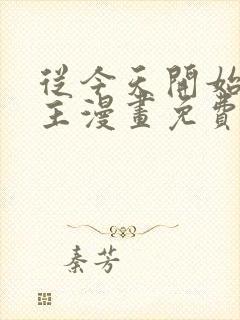 從今天開始
主漫畫免費
秦芳